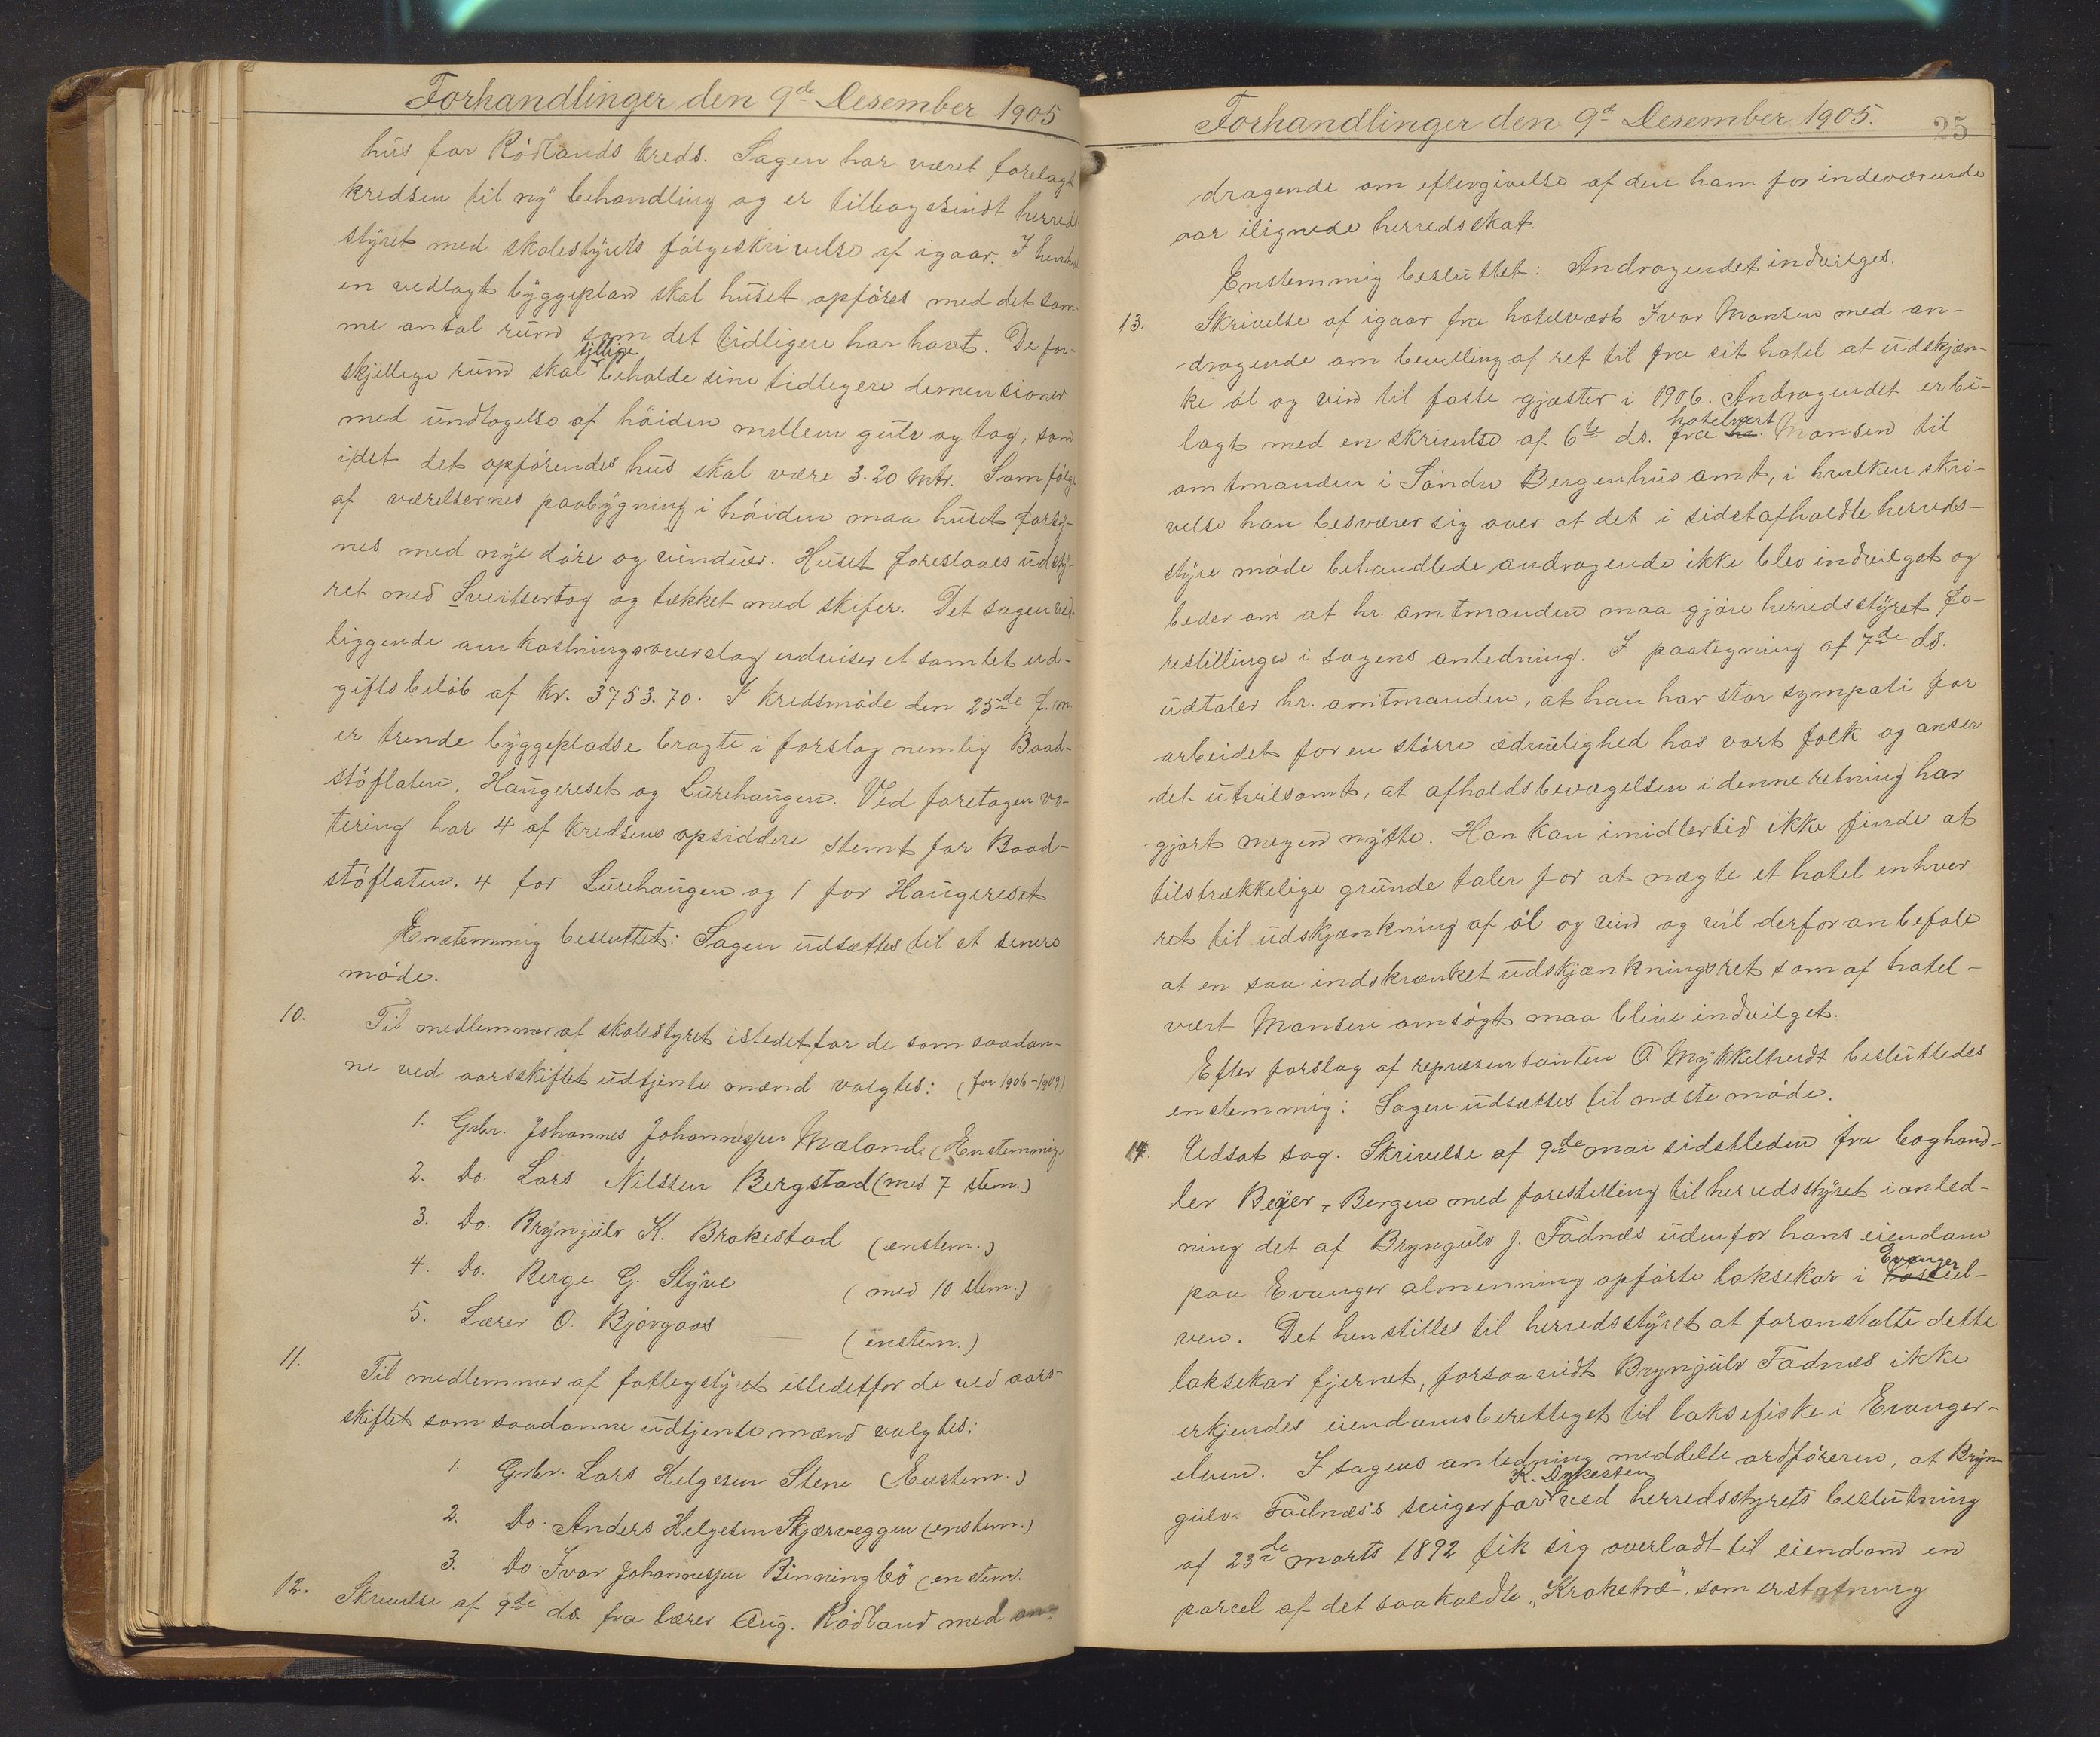 Forhandlinger den 9de Desember 1905
hus for Rödlands kreds. Sagen har været forelagt
kredsen til ny behandling og er tilbagesendt herreds
styret med skolestyrets fölgeskrivelse af igaar. I henhold
en vedlagt byggeplan skal huset opföres med det sam-
me antal rum som det tidligere har havt. De for-
skjellige rum skal tillige beholde sine tidligere demensioner
med undtagelse af höiden mellem gulv og tag, som
i det det opförendes hus skal være 3.20 mtr. Som fölge
af værelsernes paabygning i höiden maa huset forsy-
nes med nye döre og vinduer. Huset foreslaaes udsty-
ret med Sveitsertag og tækket med skifer. Det sagen ved-
liggende omkostningsoverslag udviser et samlet ud-
giftsbelöb af kr. 3753.70. I kredsmöde den 25de f.m.
er trende byggepladse bragte i forslag nemlig Baad-
stöflaten, Haugereset og Lurehaugen. Ved foretagen vo-
tering har 4 af kredsens opsiddere stemt for Baad-
stöflaten, 4 for Lurehaugen og 1 for Haugereset
Enstemmig besluttet: Sagen udsættes til et senere
möde.
10. Til medlemmer af skolestyret istedetfor de som saadan-
ne ved aarsskiftet udtjente mænd valgtes: (for 1906-1909)
1. Grbr. Johannes Johannessen Mæland (Enstemmig)
2. Do. Lars Nilssen Bergstad (med 7 stem.)
3. Do. Brynjulv K. Brakestad (enstem.)
4. Do. Berge G. Styve (med 10 stem.)
5. Lærer O. Bjørgaas (enstem.)
11. Til medlemmer af fattigstyret istedetfor de ved aars-
skiftet som saadanne udtjente mænd valgtes:
1. Grbr. Lars Helgesen Stene (Enstem.)
2. Do. Anders Helgesen Skjærveggen (enstem.)
3. Do. Ivar Johannessen Binningbö (enstem.
12. Skrivelse af 9de ds. fra lærer Aug. Rödland med an-
Forhandlinger den 9de Desember 1905.
25
dragende om eftergivelse af den ham for indeværende
aar ilignede herredsskat.
Enstemmig besluttet: Andragendet indvilges.
13. Skrivelse af igaar fra hotelvært Ivar Monsen med an-
dragende om bevilling af ret til fra sit hotel at udskjæn-
ke öl og vin til faste gjæster i 1906. Andragendet er bi-
lagt med en skrivelse af 6te ds. fra hr. hotelvært Monsen til
amtmanden i Söndre Bergenhus amt, i hvilken skri-
velse han besværer sig over at det i sidst afholdte herreds-
styre möde behandlede andragende ikke blev indvilget og
beder om at hr. amtmanden maa gjöre herredsstyret fo-
restillinger i sagens anledning. I paategning af 7de ds.
udtaler hr. amtmanden, at han har stor sympati for
arbeidet for en större ædruelighed hos vort folk og anser
det utvilsomt, at afholdsbevægelsen i denne retning har
gjort megen nytte. Han kan imidlertid ikke finde at
tilstrækkelige grunde taler for at nægte et hotel enhver
ret til udskjænkning af öl og vin og vil derfor anbefale
at en saa indskrænket udskjænkningsret som af hotel-
vært Monsen omsögt maa blive indvilget.
Efter forslag af repræsentanten O. Mykkeltvedt besluttedes
enstemmig: Sagen udsættes til næste möde.
14. Udsat sag. Skrivelse af 9de mai sidstleden fra boghand-
ler Beyer, Bergen med forestilling til herredsstyret i anled-
ning det af Bryngulv J. Fadnæs udenfor hans eiendom
paa Evanger almenning opförte laksekar i Evanger el-
ven. Det henstilles til herredsstyret at foranstalte dette
laksekar fjernet, forsaavidt Brynjulv Fadnæs ikke
erkjendes eiendomsberettiget til laksefiske i Evanger-
elven. I sagens anledning meddelte ordföreren, at Bryn-
gulv Fadnæs's svigerfar K. Dykesten ved herredsstyrets beslutning
af 23de marts 1892 fik sig overladt til eiendom en
parcel af det saakaldte "Kroketræ" som erstatning